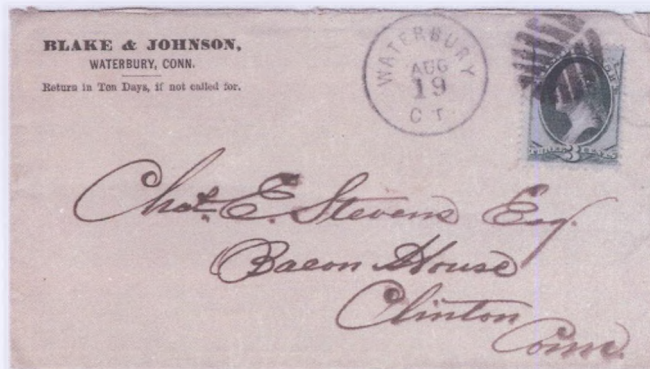 BLAKE & JOHNSON,
WATERBURY, CONN.
Return in Ten Days, if not called for.
WATERBURY
AUG
19
CT.
THREE 3 CENTS
Chas. E. Stevens Esq.
Bacon House
Clinton
Conn.